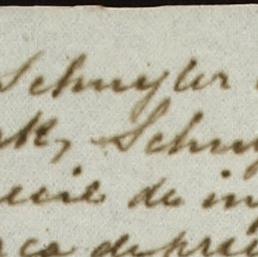 Schuyler
rk, Schuy
ecie de in
rca de prac